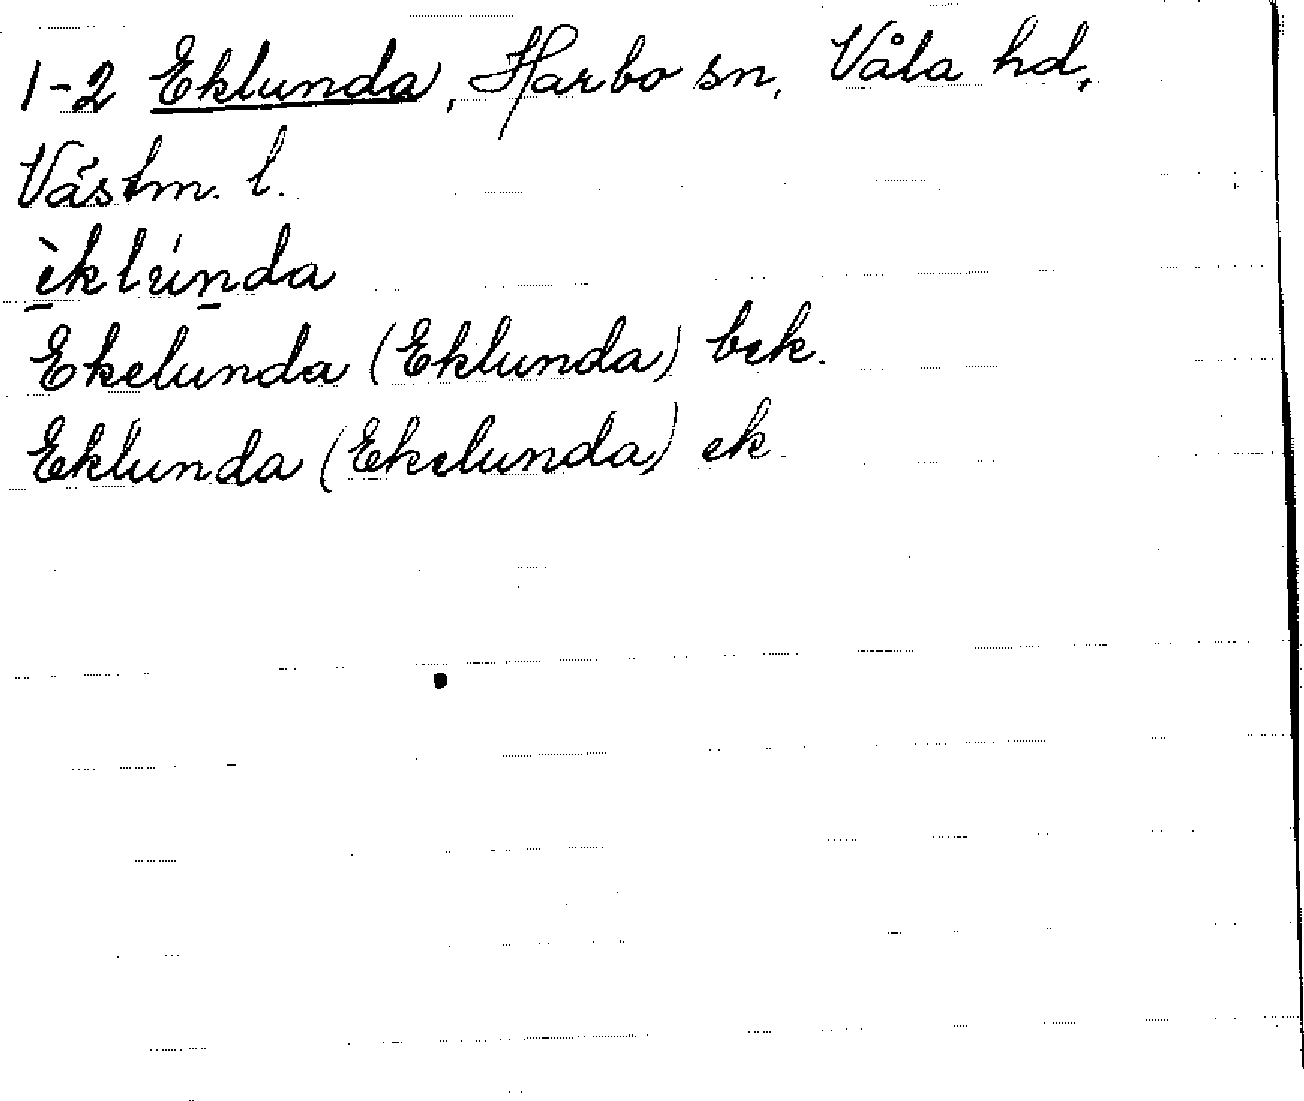 1-2 Eklunda, Harbo sn, Våla hd,
Västm. l.
èklúnda
Ekelunda (Eklunda) bek.
Eklunda (Ekelunda) ek.